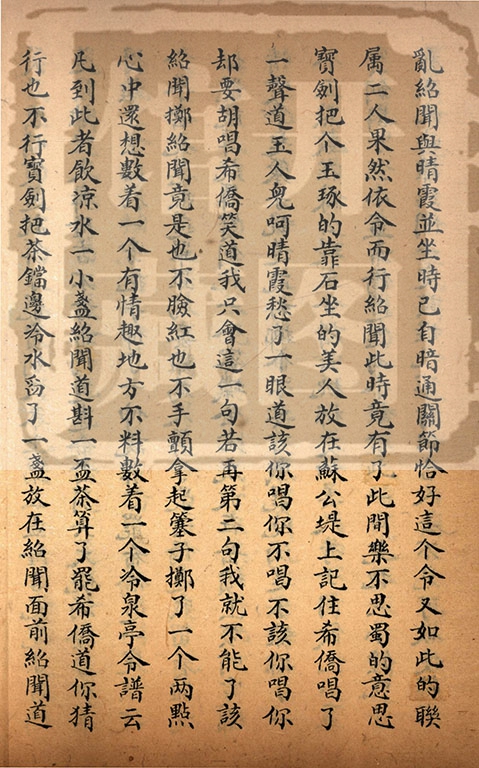 亂紹聞與晴霞並坐時已自暗通關節恰好這个令又如此的聯
属二人果然依令而行紹聞此時竟有了此間樂不思蜀的意思
寶劍把个玉琢的靠石坐的美人放在蘇公堤上記住希僑唱了
一聲道玉人兒呵晴霞愁了一眼道該你唱你不唱不該你唱你
却要胡唱希僑笑道我只會這一句若再第二句我就不能了該
紹聞擲紹聞竟是也不臉紅也不手顫拿起簺子擲了一个两點
心中還想數着一个有情趣地方不料數着一个冷泉亭令譜云
凡到此者飲凉水一小盞紹聞道斟一盃茶算了罷希僑道你猜
行也不行寶劍把茶鐺邊冷水舀了一盞放在紹聞面前紹聞道